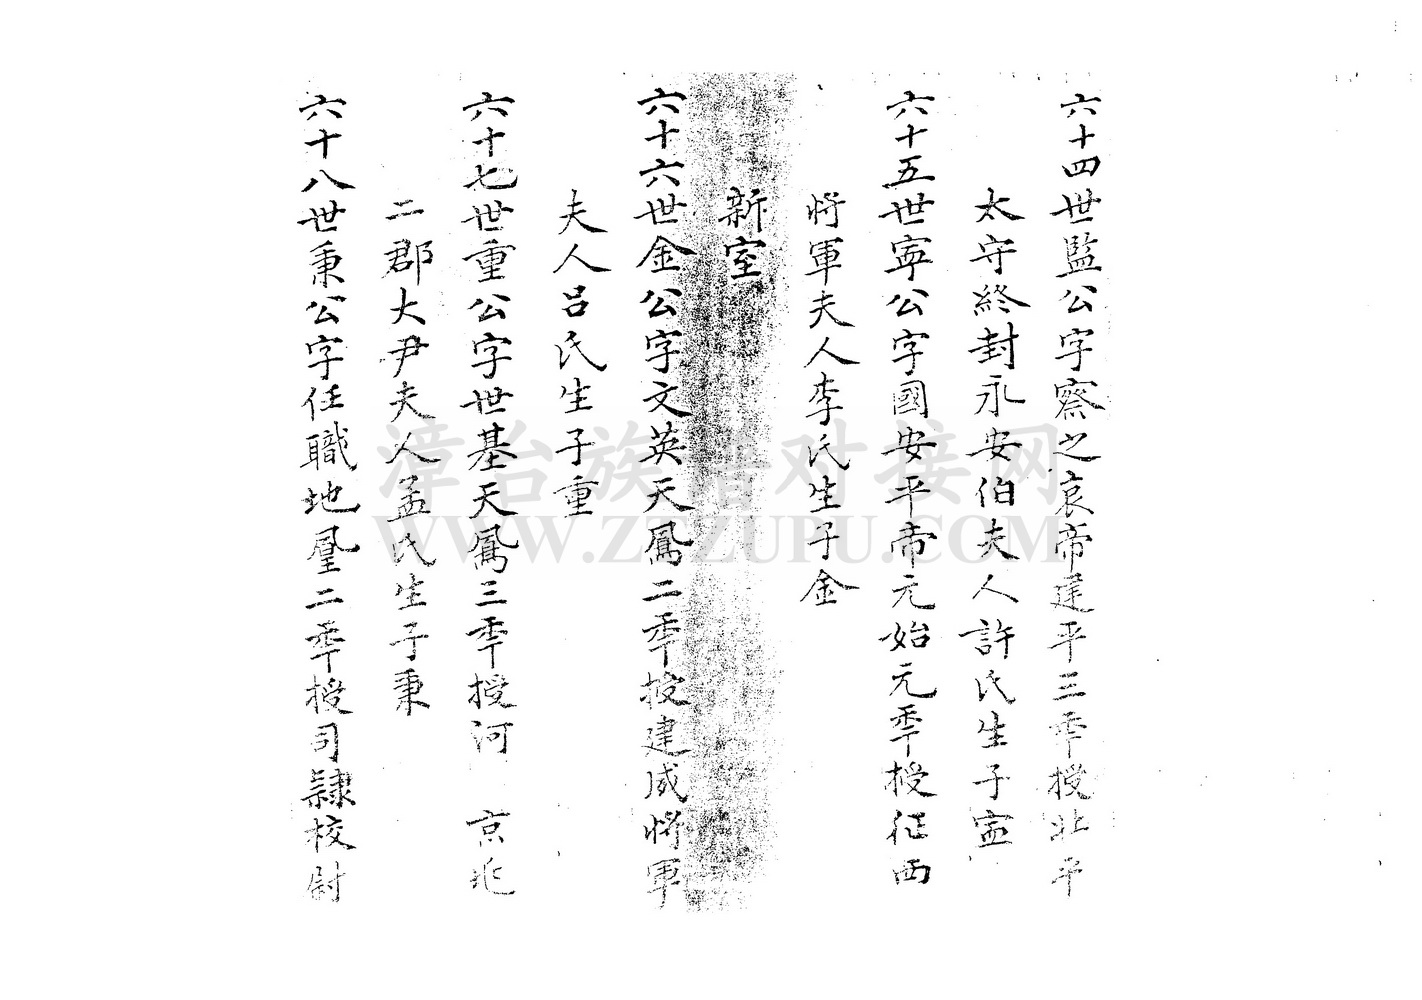 六十四世監公字察之哀帝建平三秊授北平
太守終封永安伯夫人許氏生子寍
六十五世寍公字國安平帝元始元秊授征西
將軍夫人李氏生子金
新室
六十六世金公字文英天鳳二秊授建威將軍
夫人呂氏生子重
六十七世重公字世基天鳳三秊授河 京兆
二郡大尹夫人孟氏生子秉
六十八世秉公字任職地凰二秊授司隸校尉
漳台族譜对接网
WWW.ZTZUPU.COM